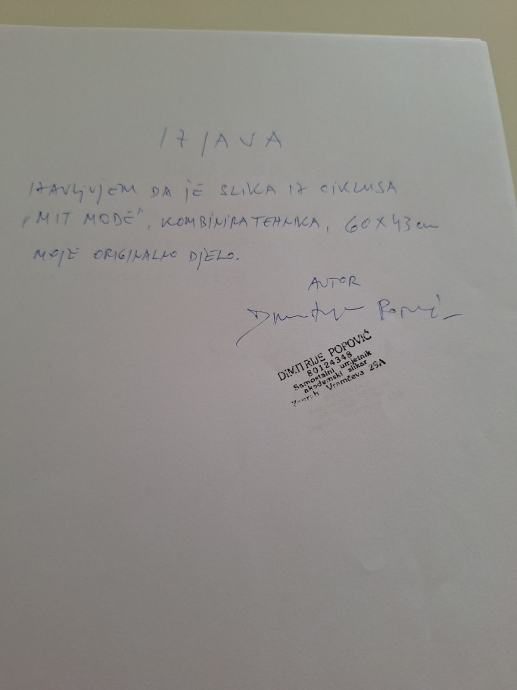 IZJAVA
IZAVLJUJEM DA JE SLIKA IZ CIKLUSA
"MIT MODE", KOMBINIRA TEHNIKA, 60X43 cm
MOJE ORIGINALNO DJELO.
AUTOR
Dimitrije Popović
DIMITRIJE POPOVIĆ
80124348
Samostalni umjetnik
akademski slikar
Zagreb Vramčeva 25A